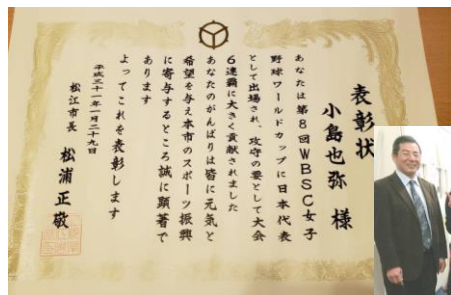 表彰状
小島也弥 様
あなたは第8回WBSC女子
野球ワールドカップに日本代表
として出場され、攻守の要として大会
6連覇に大きく貢献されました
あなたのがんばりは皆に元気と
希望を与え本市のスポーツ振興
に寄与するところ誠に顕著で
あります
よってこれを表彰します
平成三十一年一月二十九日
松江市長 松浦正敬